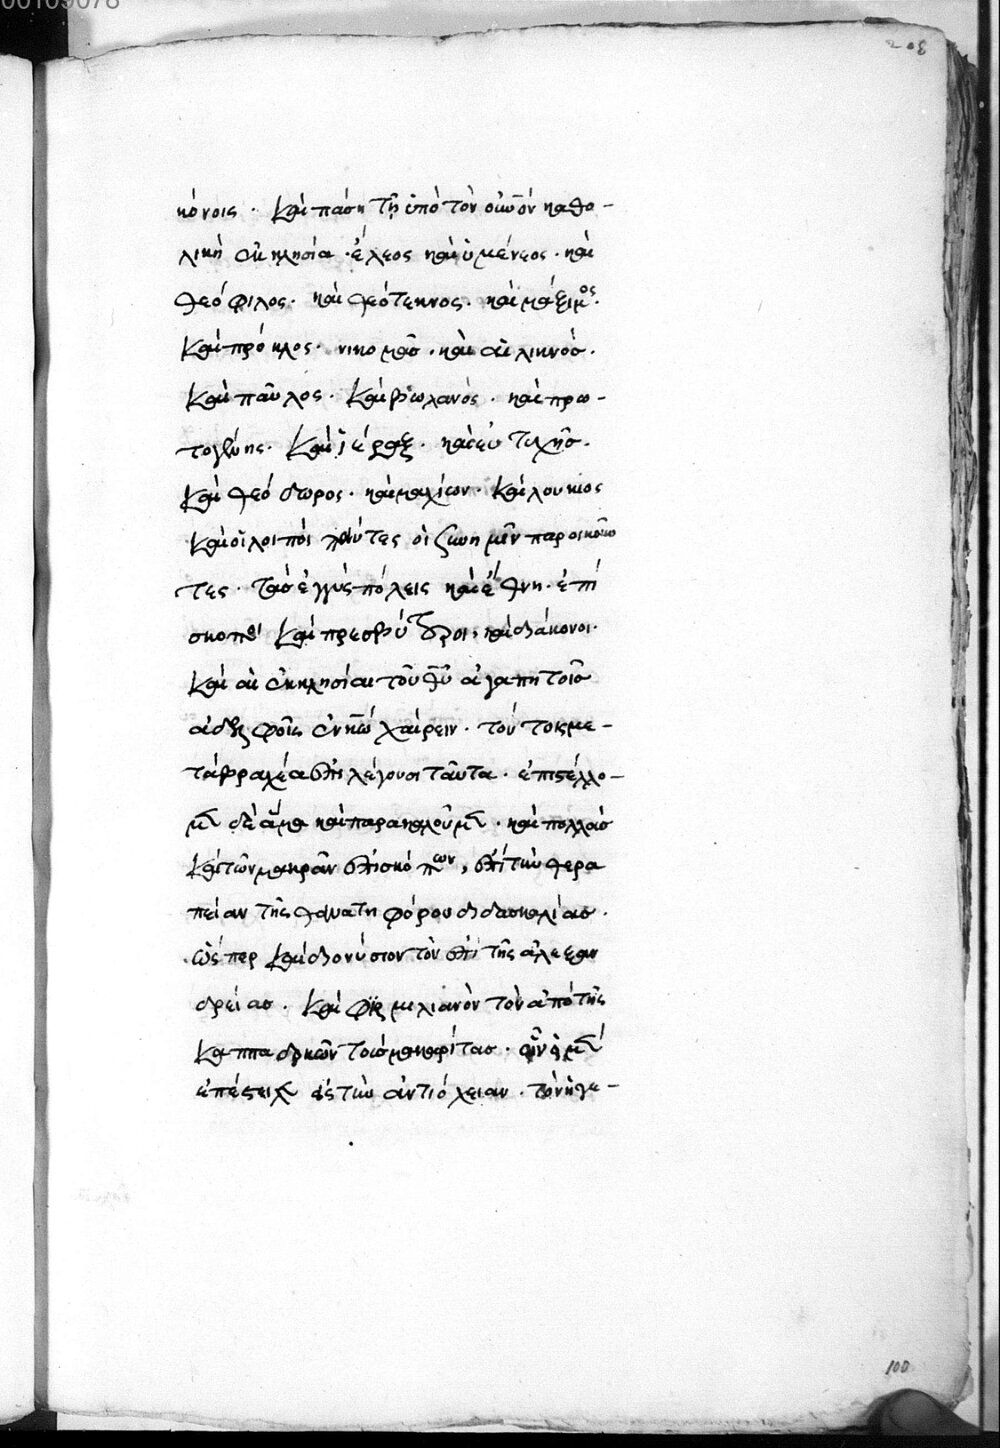 00109078
κόνοις · καὶ πάσῃ τῇ ὑπὸ τὸν οὐνὸν καθο-
λικῇ ἐκκλησία · ἕλεος καὶ ὑμέναιος · καὶ
θεόφιλος · καὶ θεότεκνος · καὶ μάξιμος ·
καὶ πρόκλος · νικομᾶς · καὶ αἰλιανός ·
καὶ παῦλος · καὶ βωλανός · καὶ πρω-
τογένης · καὶ ἱέραξ · καὶ εὐτυχὴς ·
καὶ θεόδωρος · καὶ μαλχίων · καὶ λούκιος
καὶ οἱ λοιποὶ πάντες οἱ σὺν ἡμῖν παροικοῦν
τες · τὰς ἐγγὺς πόλεις καὶ ἔθνη · ἐπί
σκοποι καὶ πρεσβύτεροι, καὶ διάκονοι ·
καὶ αἱ ἐκκλησίαι τοῦ θῦ ἀγαπητοῖς
ἀδελφοῖς ἐν κῶ χαίρειν · τούτοις με-
τὰ βραχέα ἐπιλέγουσι ταῦτα · ἐπιστέλλο-
μεν δὲ ἅμα καὶ παρακαλοῦμεν · καὶ πολλοὺς
καὶ τῶν μακρὰν ἐπισκόπων, ἐπὶ τὴν θερα
πείαν τῆς θανατηφόρου διδασκαλίας ·
ὥσπερ καὶ διονύσιον τὸν ἐπὶ τῆς ἀλεξαν
δρείας · καὶ φιρμιλιανὸν τὸν ἀπὸ τῆς
καππαδοκῶν τοὺς μακαρίτας · ὧν ὁ μὲν
ἐπέστειλεν εἰς τὴν ἀντιόχειαν · τὸν ἡγε-
100